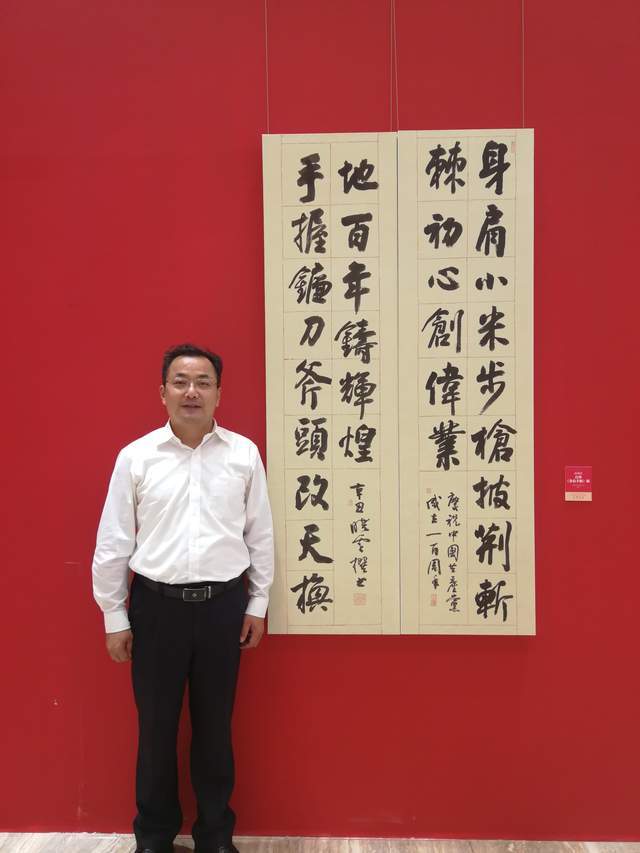 身肩小米步槍披荆斬
棘初心創偉業
慶祝中國共產黨
成立一百周年
手握鐮刀斧頭改天換
地百年鑄輝煌
辛丑